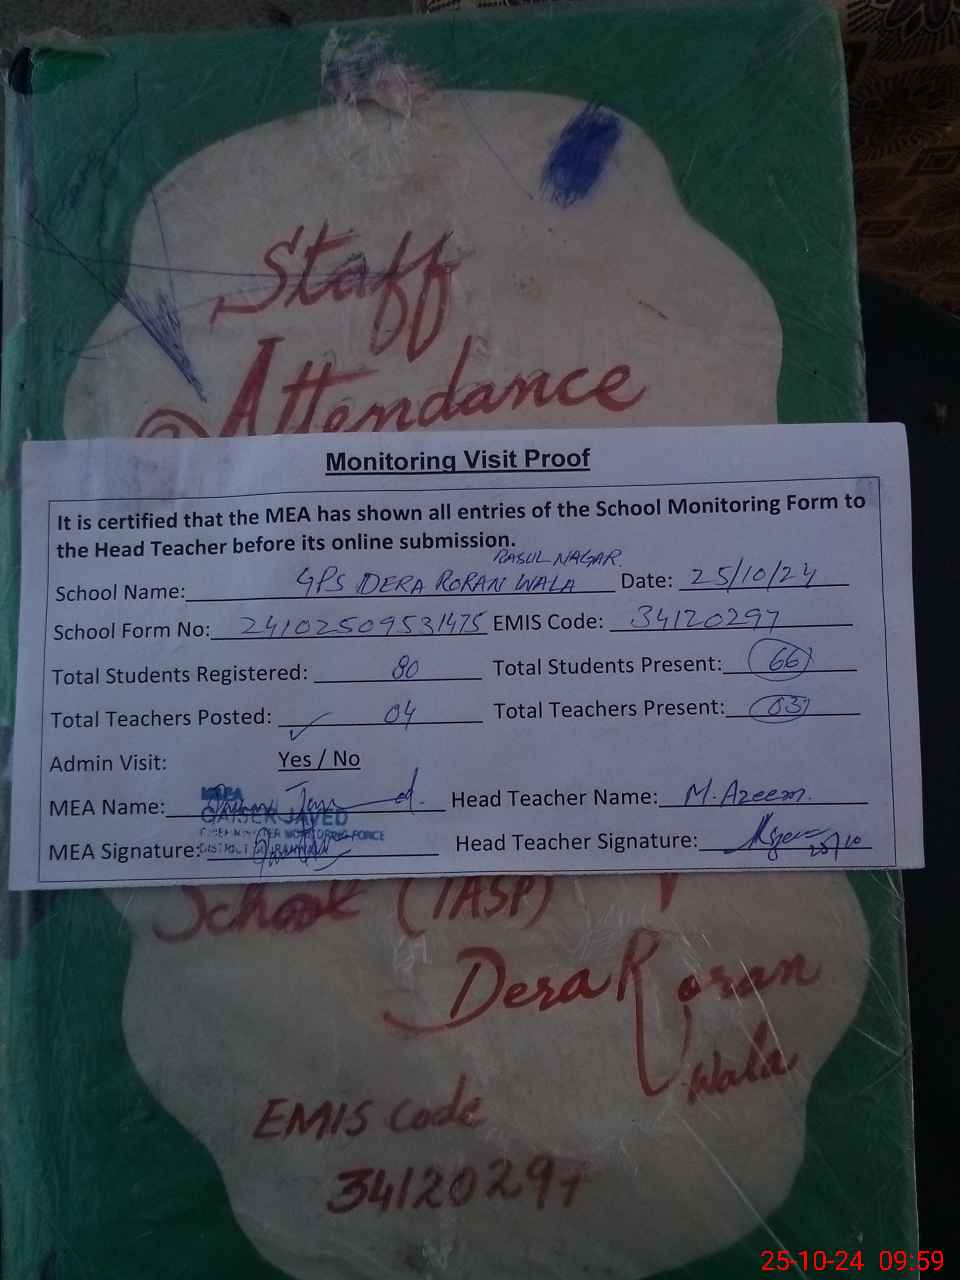 Staff
Attendance
Monitoring Visit Proof
It is certified that the MEA has shown all entries of the School Monitoring Form to
the Head Teacher before its online submission.
RASUL NAGAR.
School Name: GPS DERA RORAN WALA Date: 25/10/24
School Form No: 24102509531475 EMIS Code: 34120297
Total Students Registered: 80 Total Students Present: 66
Total Teachers Posted: 04 Total Teachers Present: 03
Admin Visit: Yes / No
MEA Name: Head Teacher Name: M. Azeem.
QAISER JAVED
MEA Signature: Head Teacher Signature: 25/10
School (TASP)
Dera Roran
Wala
EMIS code
34120297
25-10-24 09:59